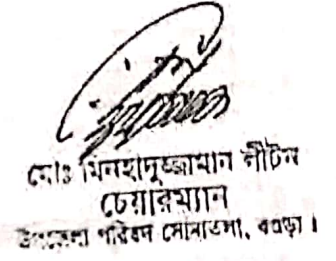 মোঃ মিনহাদুজ্জামান লীটন
চেয়ারম্যান
উপজেলা পরিষদ সোনাতলা, বগুড়া।